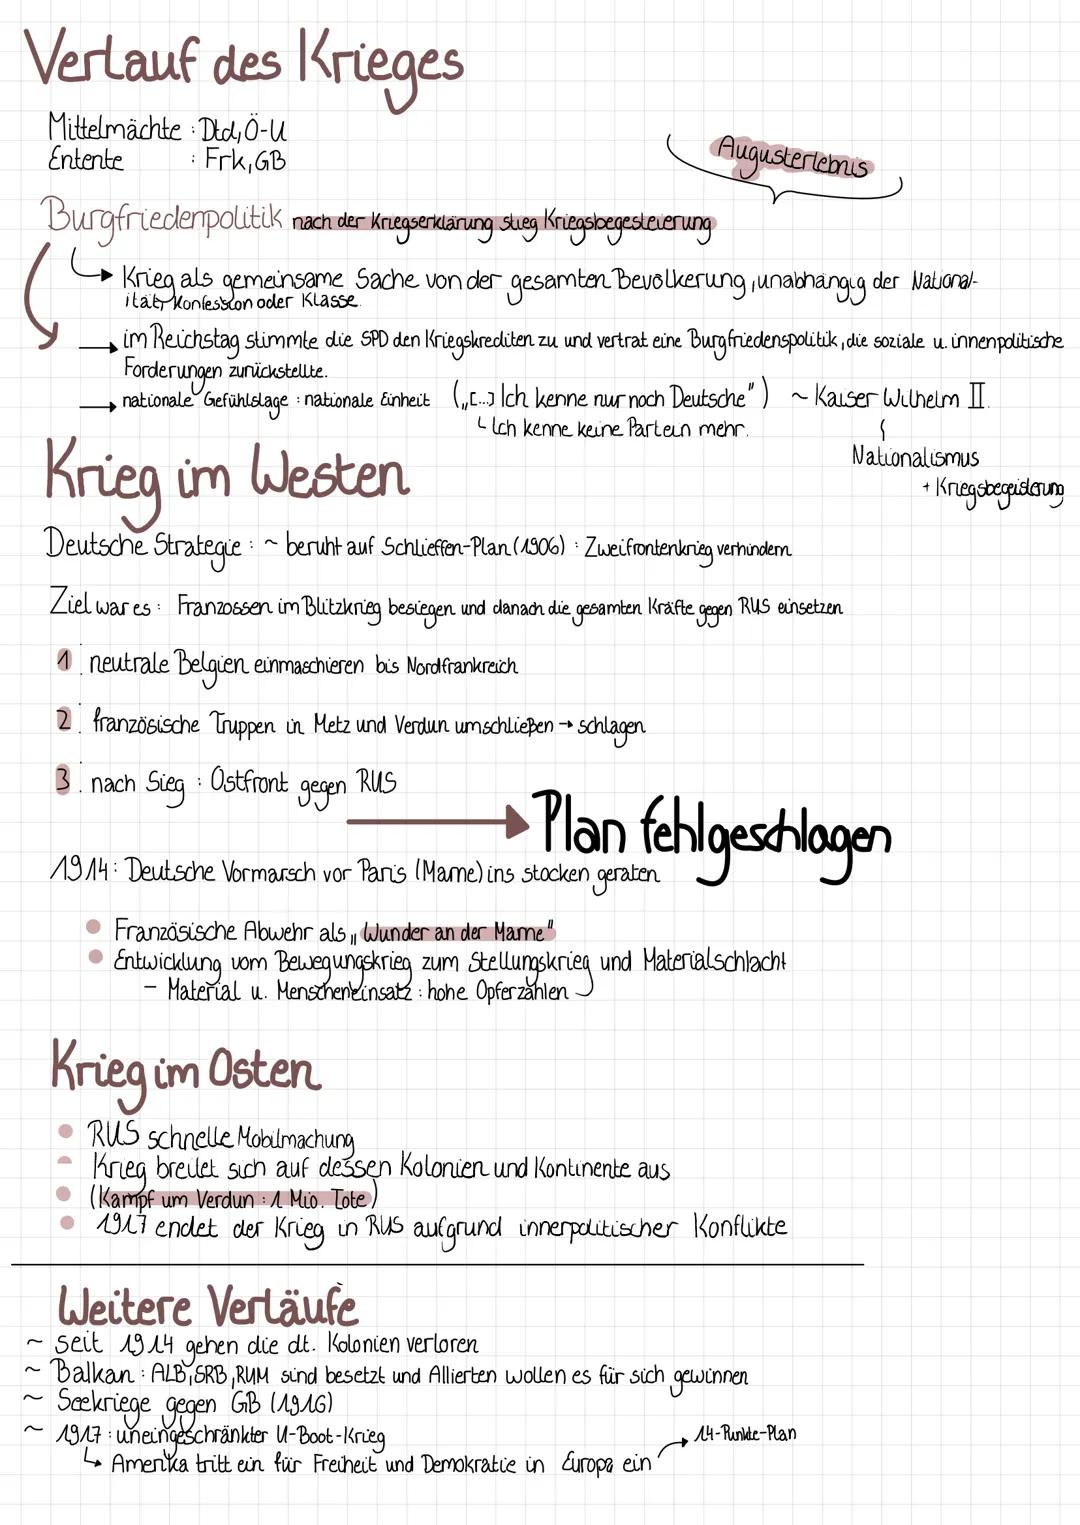 Verlauf des Krieges
Mittelmächte : Dtd, Ö-U
Entente : Frk, GB
Augusterlebnis
Burgfriedenpolitik nach der Kriegserklärung stieg Kriegsbegesteierung
→ Krieg als gemeinsame Sache von der gesamten Bevölkerung, unabhängig der National-
ität, Konfession oder Klasse.
→ im Reichstag stimmte die SPD den Kriegskrediten zu und vertrat eine Burgfriedenspolitik, die soziale u. innenpolitische
Forderungen zurückstellte.
→ nationale Gefühlslage : nationale Einheit („[...] Ich kenne nur noch Deutsche") ~ Kaiser Wilhelm II.
↳ Ich kenne keine Partein mehr.
Nationalismus
+ Kriegsbegeisterung
Krieg im Westen
Deutsche Strategie : ~ beruht auf Schlieffen-Plan (1906) : Zweifrontenkrieg verhindern
Ziel war es : Franzossen im Blitzkrieg besiegen und danach die gesamten Kräfte gegen RUS einsetzen
1. neutrale Belgien einmaschieren bis Nordfrankreich
2. französische Truppen in Metz und Verdun umschließen → schlagen
3. nach Sieg : Ostfront gegen RUS
→ Plan fehlgeschlagen
1914: Deutsche Vormarsch vor Paris (Marne) ins stocken geraten
• Französische Abwehr als „Wunder an der Marne"
• Entwicklung vom Bewegungskrieg zum Stellungskrieg und Materialschlacht
- Material u. Menscheneinsatz : hohe Opferzahlen
Krieg im Osten
• RUS schnelle Mobilmachung
• Krieg breitet sich auf dessen Kolonien und Kontinente aus
• (Kampf um Verdun : 1 Mio. Tote)
• 1917 endet der Krieg in RUS aufgrund innerpolitischer Konflikte
Weitere Verläufe
~ seit 1914 gehen die dt. Kolonien verloren
~ Balkan : ALB, SRB, RUM sind besetzt und Allierten wollen es für sich gewinnen
~ Seekriege gegen GB (1916)
~ 1917 : uneingeschränkter U-Boot-Krieg
→ 14-Punkte-Plan
↳ Amerika tritt ein für Freiheit und Demokratie in Europa ein